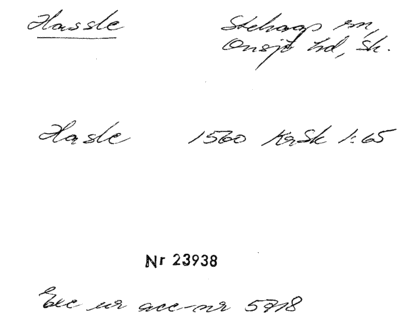 Hassle
Stehags sn,
Onsjö hd, Sk.
Hasle 1560 KrSk 1:65
Nr 23938
Exc ur acc-nr 5718